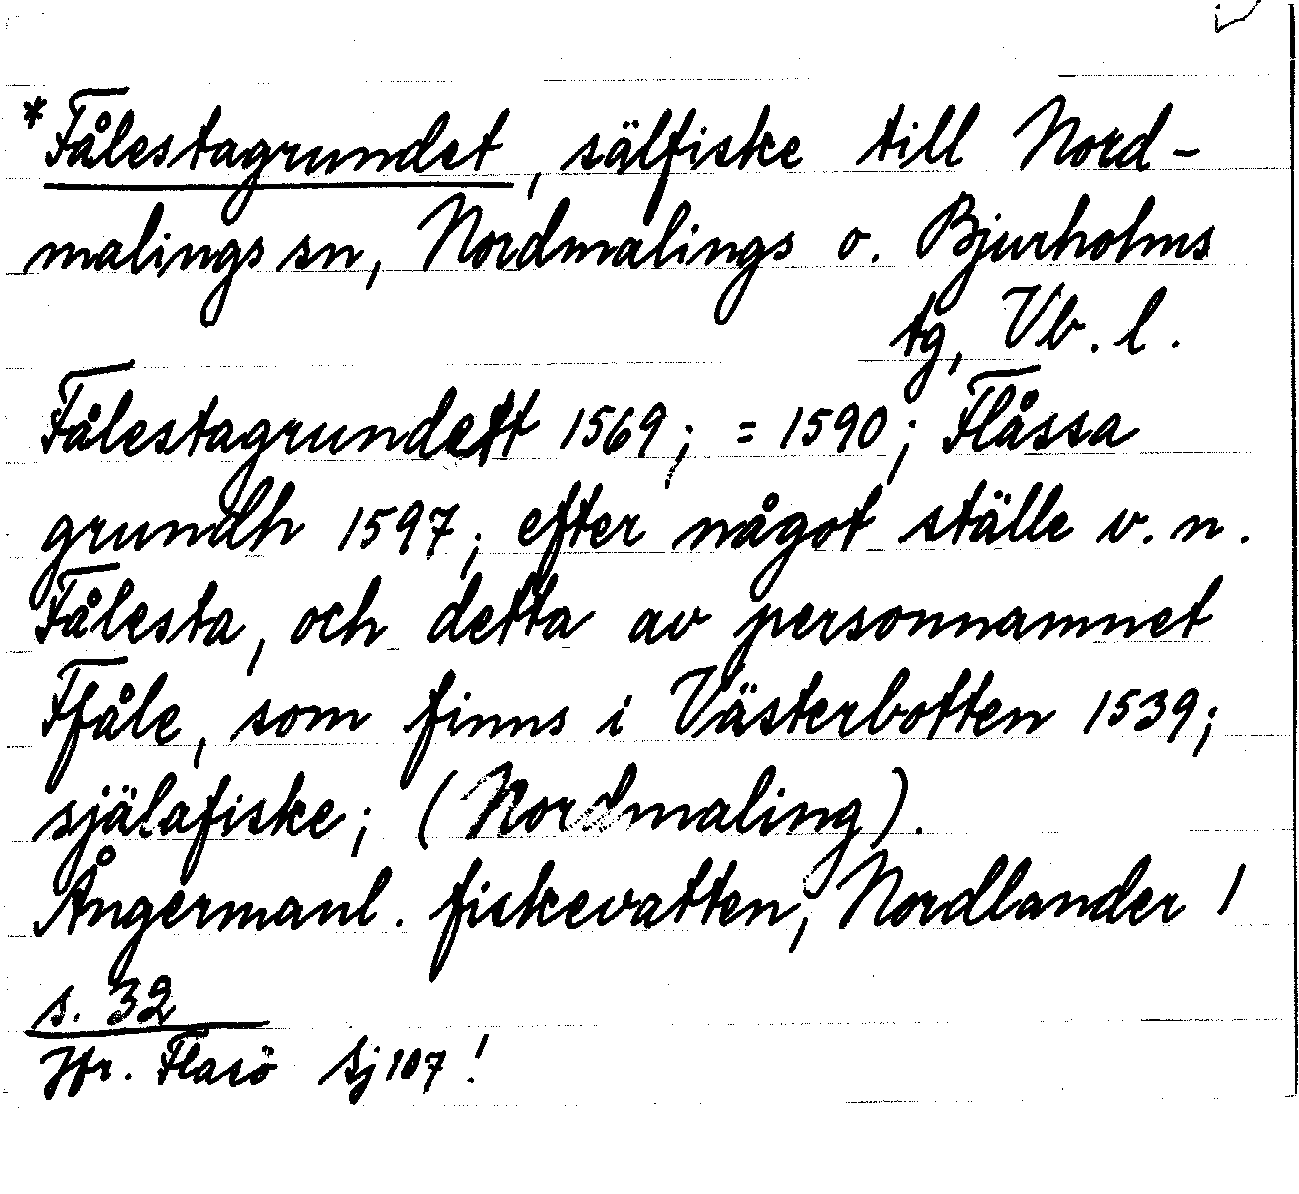 *Fålestagrundet, sälfiske till Nord-
malings sn, Nordmalings o. Bjurholms
tg, Vb. l.
Fålestagrundett 1569; = 1590; Flåssa
grundh 1597; efter något ställe v. n.
Fålesta, och detta av personnamnet
Ffåle, som finns i Västerbotten 1539;
själafiske; (Nordmaling).
Ångermanl. fiskevatten, Nordlander 1
s. 32
Jfr. Flasö Sj 107!